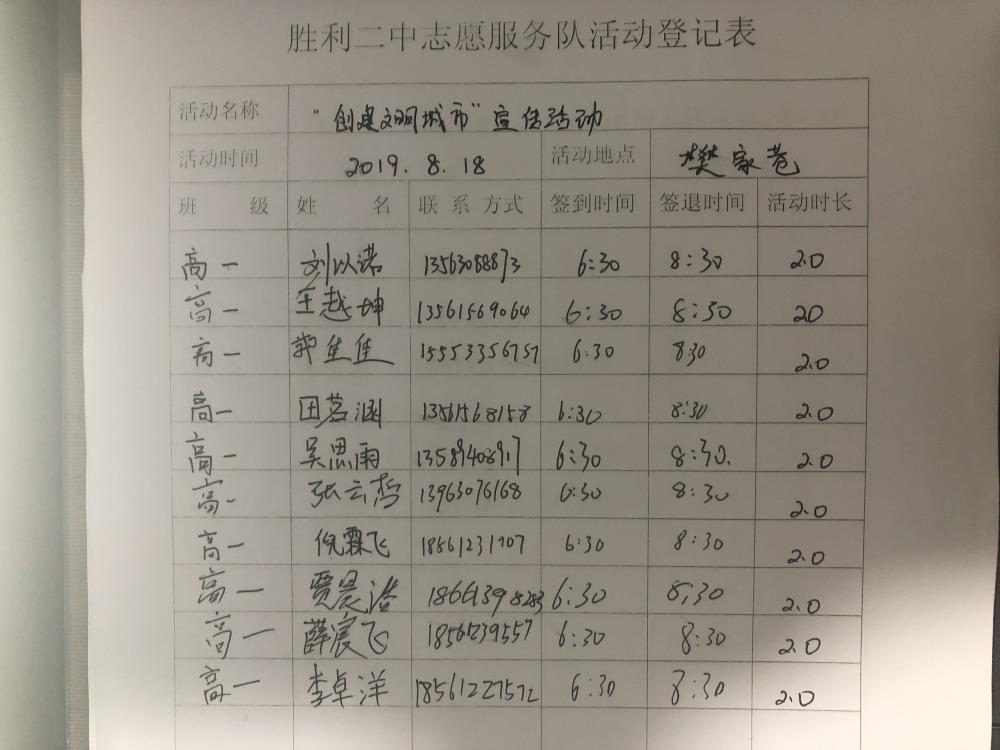 胜利二中志愿服务队活动登记表
活动名称 "创建文明城市"宣传活动
活动时间 2019.8.18 活动地点 樊家巷
班 级 姓 名 联系方式 签到时间 签退时间 活动时长
高一 刘以诺 6:30 8:30 2.0
高一 王越坤 13561569064 6:30 8:30 20
高一 佳佳 15553356757 6:30 8:30 2.0
高一 田茗涵 13561568158 6:30 8:30 2.0
高一 吴思雨 6:30 8:30. 2.0
高一 张云哲 13963076168 6:30 8:30 2.0
高一 倪霖飞 18561231707 6:30 8:30 2.0
高一 贾晨 18661398283 6:30 8:30 2.0
高一 薛宸飞 6:30 8:30 2.0
高一 李卓洋 18561227572 6:30 8:30 2.0